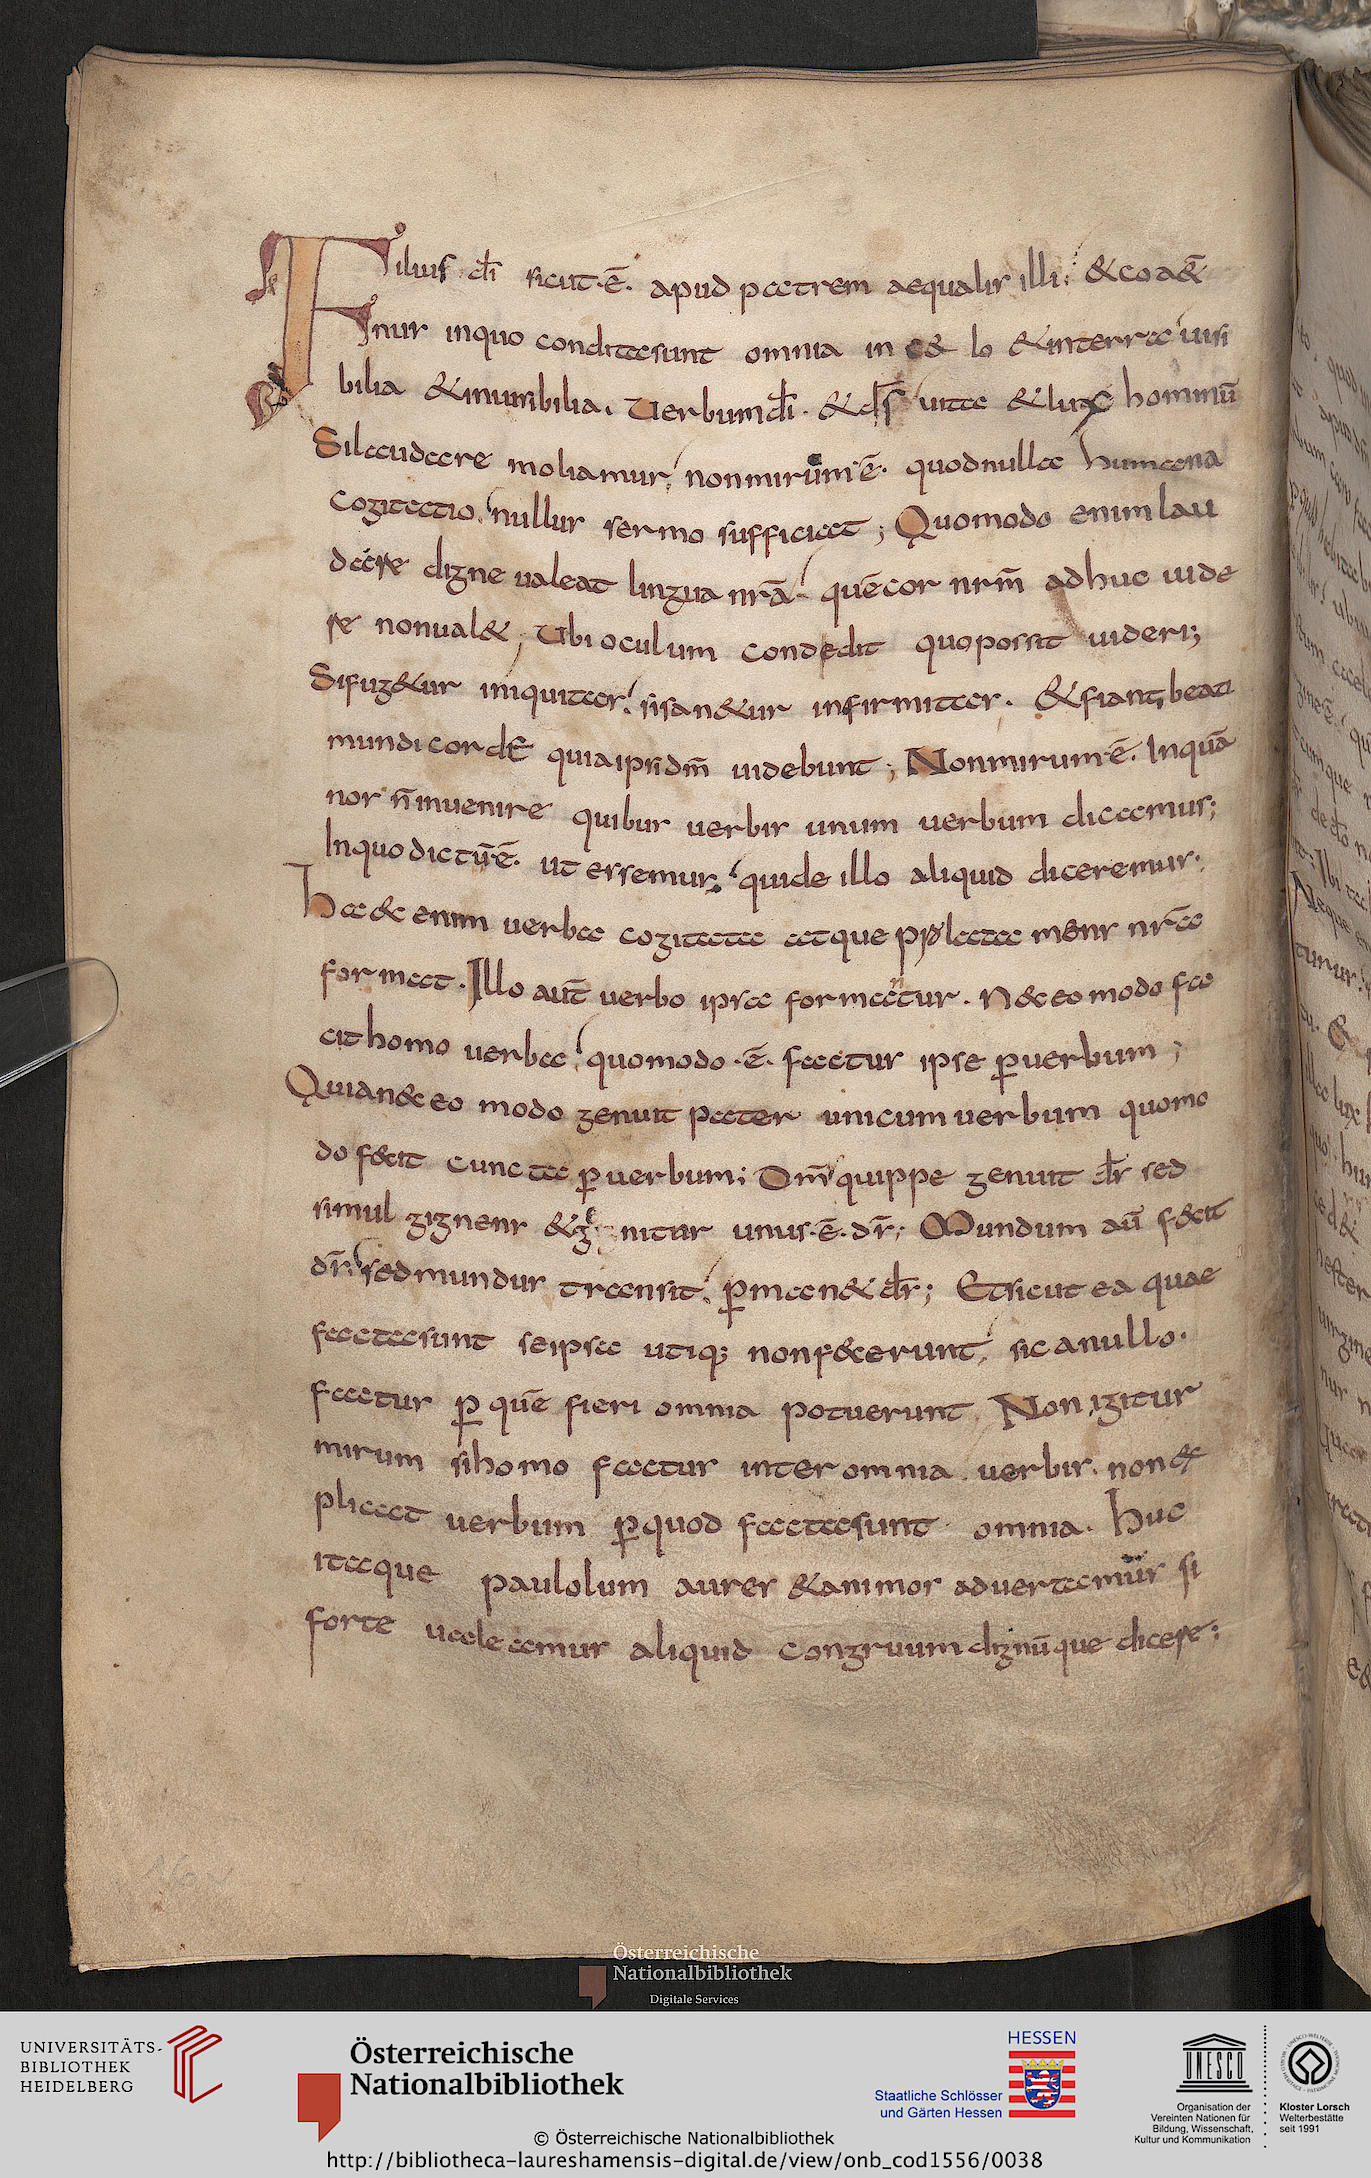 Filius dī sicut·ē· apud patrem aequalis illi; &coa&ē
rnus inquo conditasunt omnia in c&lo &interra uisi
bilia &inuisibilia. Uerbum dī· &ds̄ uita &lux hominū
Silaudare moliamur, nonmirum ē· quodnulla humana
cogitatio, nullus sermo sufficiat; Quomodo enim lau
dare digne ualeat lingua nr̄a· quēcor nrm̄ adhuc uide
re nonual&; Ubi oculum condedit quopossit uideri;
Sifug&ur iniquitas, sisan&ur infirmitas. &fiant, beati
mundi corde quiaipsi dm̄ uidebunt; Nonmirum·ē. Inquā
nos n̄ inuenire quibus uerbis unum uerbum dicamus;
Inquo dictū ē· ut essemus, quide illo aliquid diceremus·
Haec enim uerba cogitata atque plata mens nr̄a
format. Illo aut̄ uerbo ipsa formatur. Nec eo modo fa
cit homo uerba, quomodo·ē· factus ipse puerbum;
Quianec eo modo genuit pater unicum uerbum quomo
do fecit cuncta puerbum; Dm̄ quippe genuit ds̄ sed
simul gignens &genitus unus·ē·ds̄; Mundum aū fecit
ds̄, sedmundus transit, pman& ds̄; Etsicut ea quae
factasunt seipsa utiq; nonfecerunt, sic anullo·
factus p quē fieri omnia potuerunt, Non igitur
mirum sihomo factus inter omnia uerbis non ex
plicat uerbum pquod factasunt omnia. huc
itaque paulolum aures &animos aduertamus si
forte ualeamus aliquid congruum dignū que dicere;
Österreichische
Nationalbibliothek
Digitale Services
UNIVERSITÄTS-
BIBLIOTHEK
HEIDELBERG
Österreichische
Nationalbibliothek
HESSEN
Staatliche Schlösser
und Gärten Hessen
UNESCO
Organisation der
Vereinten Nationen für
Bildung, Wissenschaft,
Kultur und Kommunikation
Kloster Lorsch
Welterbestätte
seit 1991
© Österreichische Nationalbibliothek
http://bibliotheca-laureshamensis-digital.de/view/onb_cod1556/0038